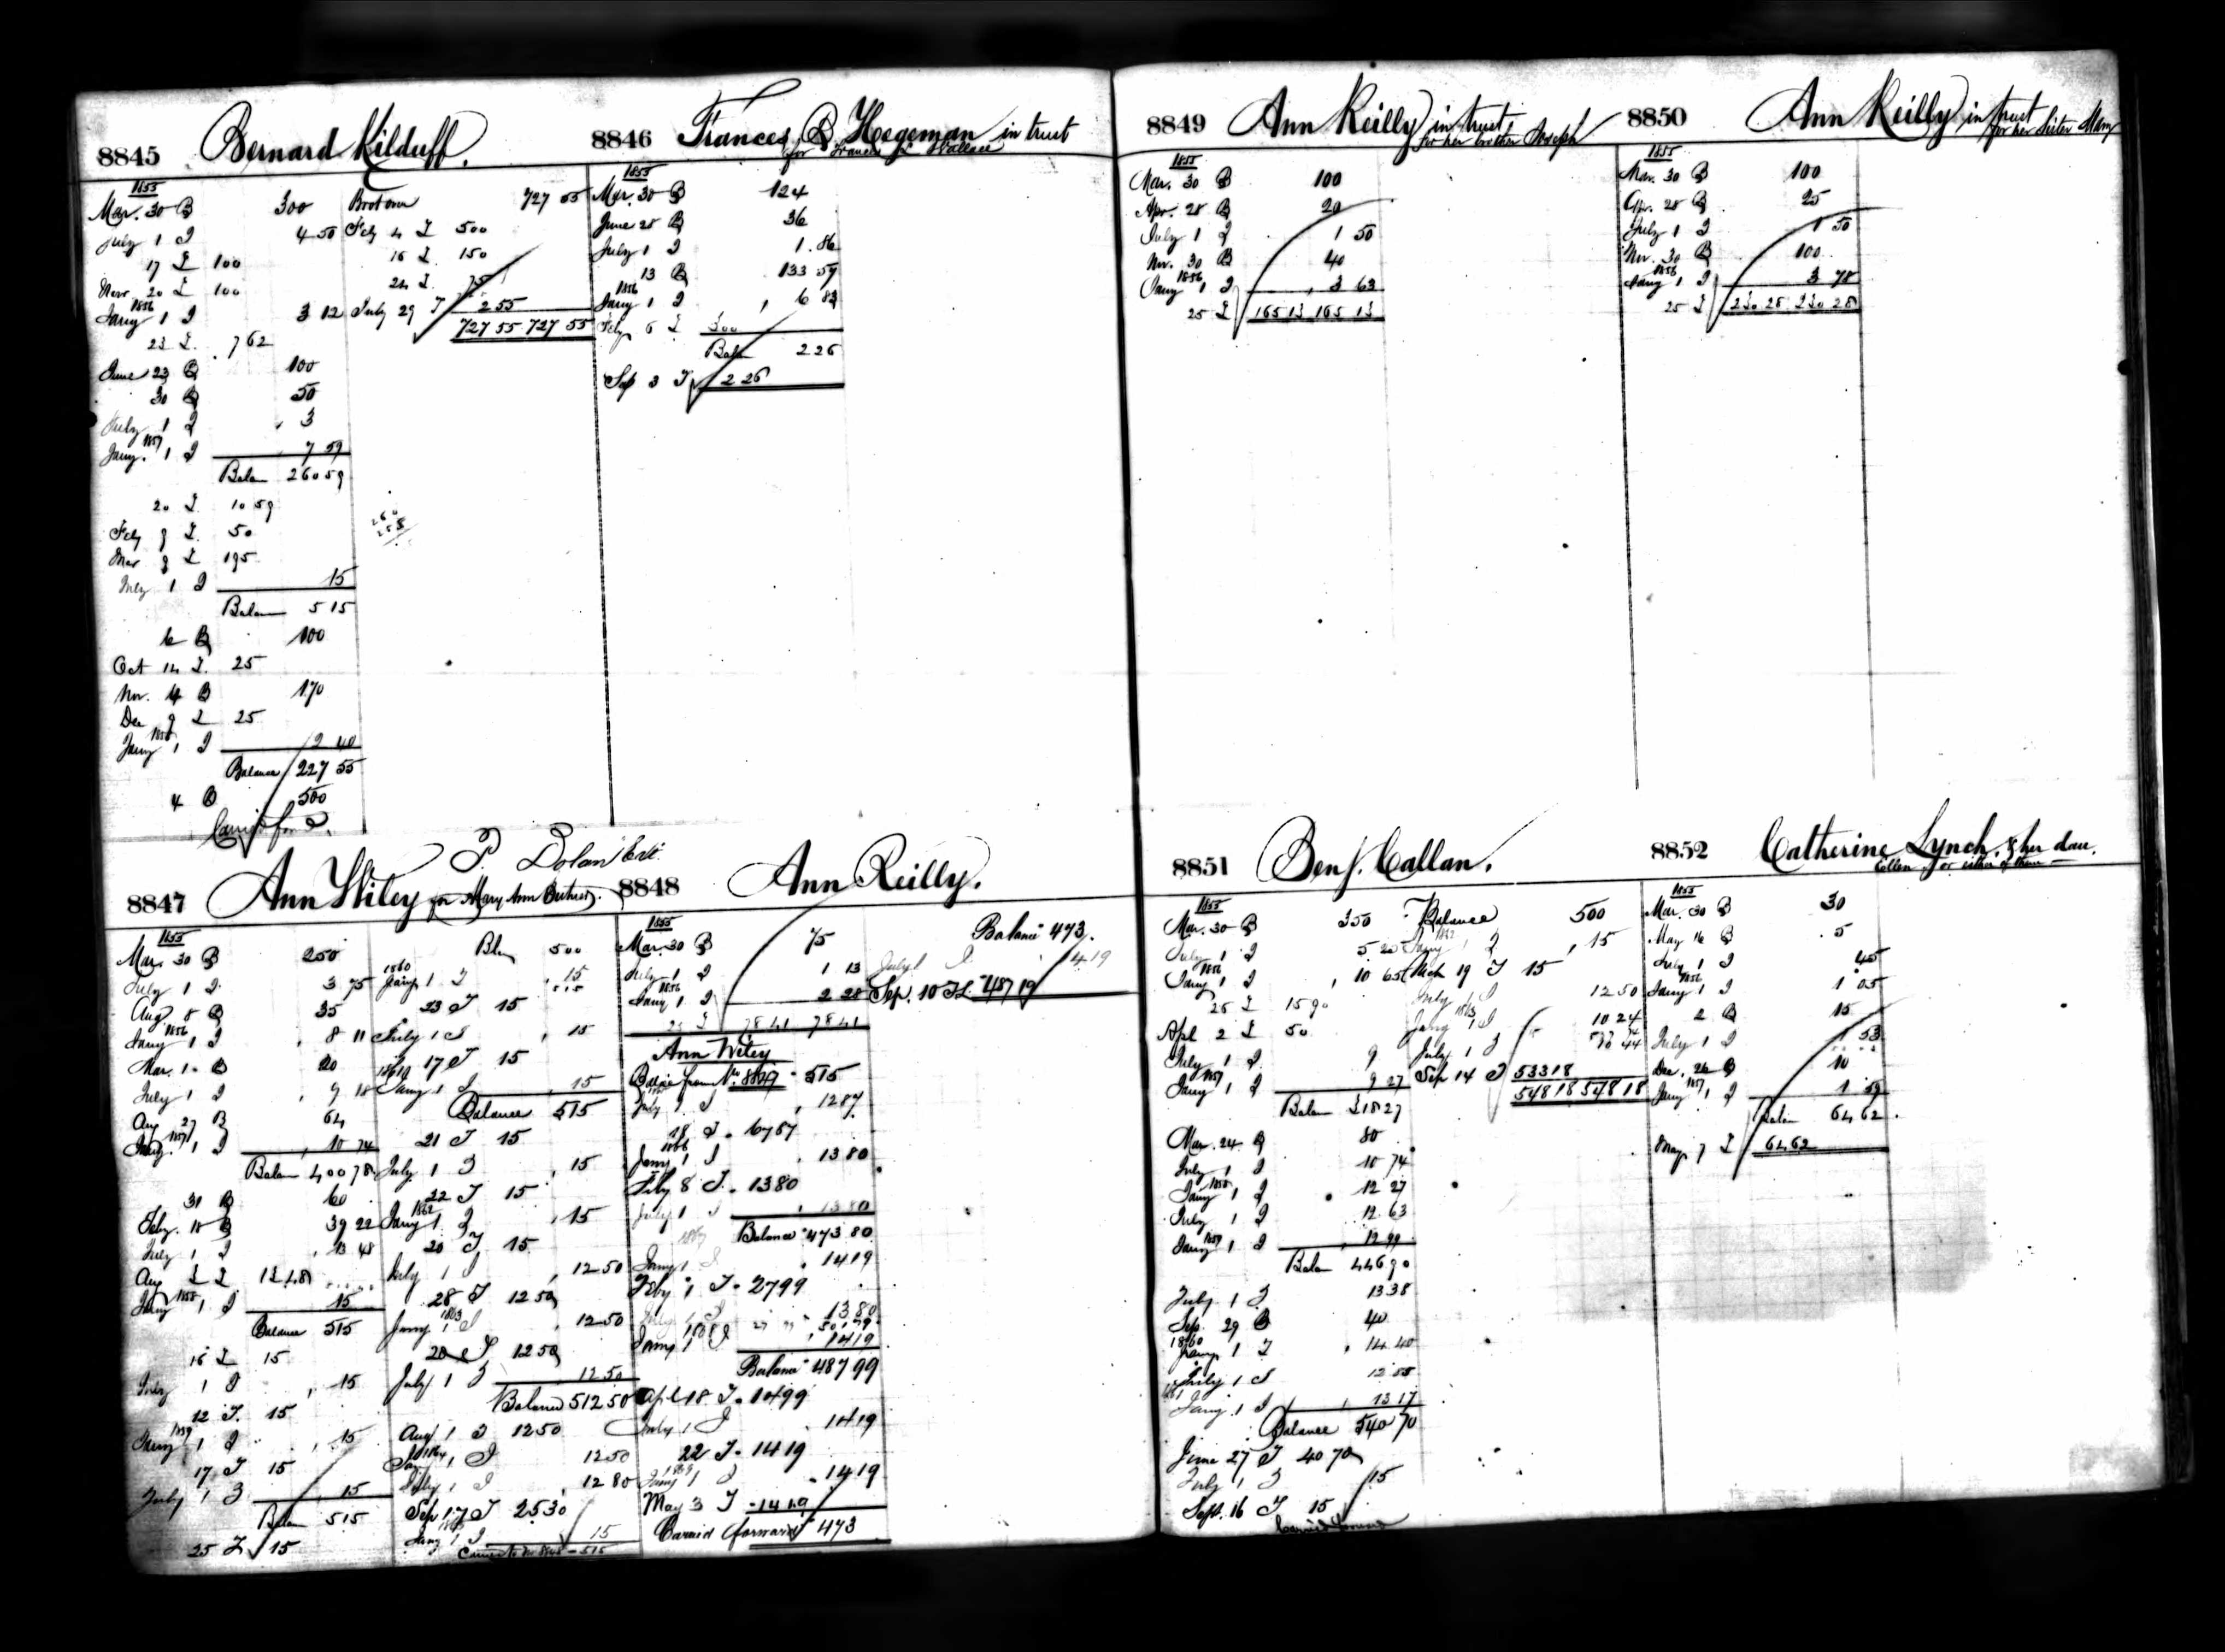 8845 Bernard Kilduff.
1855
Mar. 30 B 300
July 1 I 4 50
17 L 100
Nov 20 L 100
1856
Jany 1 I 3 12
23 L. 7 62
June 23 B 100
30 B 50
July 1 I 3
1857
Jany. 1 I 7 59
Balan 260 59
20 L 10 59
Feby 9 L 50
Mar 9 L 195
July 1 I 15
Balan 5 15
6 B 100
Oct 14 L. 25
Nov. 4 B 170
Dec 9 L 25
1858
Jany 1 I 2 40
Balance 227 55
4 B 500
Carried ford.
Brot over 727 55
Feby 4 L 500
16 L 150
24 L 75
July 29 T 2 55
727 55 727 55
8846 Frances B Hegeman in trust
for Frances Wallace
1855
Mar. 30 B 124
June 25 B 36
July 1 I 1.86
13 B 133 57
1856
Jany 1 I 6 83
Feby 6 L 300
Balan 2 26
Sep 3 T 2 26
8847 Ann Wiley for Mary Ann
P. Dolan
1855
Mar. 30 B 250
July 1 I 3 75
Aug 8 B 35
1856
Jany 1 I 8 11
Mar. 1 B 20
July 1 I 9 18
Aug 27 B 64
1857
Jany. 1 I 10 74
Balan 400 78
31 B 60
Feby. 18 B 39 22
July 1 I 13 48
Aug L 13 48
1858
Jany 1 I 15
Balance 515
16 L 15
July 1 I 15
12 T. 15
1859
Jany 1 I 15
17 T 15
July 1 I 15
Balan 515
25 L 15
Baln 500
1860
Jany 1 I 15
515
23 T 15
July 1 I 15
17 T 15
1861
Jany 1 I 15
Balance 515
21 T 15
July 1 I 15
22 T 15
1862
Jany 1 I 15
20 T 15
July 1 I 12 50
28 T 12 50
1863
Jany 1 I 12 50
20 T 12 50
July 1 I 12 50
Balance 512 50
Aug 1 T 12 50
1864
Jan 1 I 12 50
July 1 I 12 80
Sep 17 T 25 30
Jany 1 I 15
Carried to No 8848 - 515
8848 Ann Reilly.
1855
Mar. 30 B 75
July 1 I 1 13
1856
Jany 1 I 2 28
25 L 78 41 78 41
Ann Wiley
Balce from No. 8847 515
July 1 I 12 87
28 T. 67 87
1866
Jany 1 I 13 80
Feby 8 T. 13 80
July 1 I 13 80
Balance 473 80
1867
Jany 1 I 14 19
Feby 1 T. 27 99
July 1 I 13 80
1868
Jany 1 I 14 19
Balance 487 99
Apl 18 T. 14 99
July 1 I 14 19
22 T. 14 19
1869
Jany 1 I 14 19
May 3 T 14 19
Carried forward 473
Balance 473.
July 1 I 14 19
Sep. 10 TL 487 19
8849 Ann Reilly in trust
for her brother Joseph
1855
Mar. 30 B 100
Apr. 28 B 20
July 1 I 1 50
Nov. 30 B 40
1856
Jany 1 I 3 63
25 L 165 13 165 13
8850 Ann Reilly in trust
for her Sister Mary
1855
Mar. 30 B 100
Apr. 28 B 25
July 1 I 1 50
Nov. 30 B 100
1856
Jany 1 I 3 78
25 L 230 28 230 28
8851 Benj. Callan.
1855
Mar. 30 B 350
July 1 I 5 25
1856
Jany 1 I 10 65
25 L 15 90
Apl 2 L 50
July 1 I 9
1857
Jany 1 I 9 27
Balan 318 27
Mar. 24 B 80
July 1 I 10 74
1858
Jany 1 I 12 27
July 1 I 12 63
1859
Jany 1 I 12 99
Balan 446 90
July 1 I 13 38
Sep. 29 B 40
1860
Jany 1 I 14 40
July 1 I 12 85
1861
Jany 1 I 13 17
Balance 540 70
June 27 T 40 70
July 1 I 15
Sept. 16 T 15
Carried forward
Balance 500
1862
Jany 1 I 15
Mch 19 T 15
July 1 I 12 50
1863
Jany 1 I 10 24
July 1 I 10 44
Sep 14 T 533 18
548 18 548 18
8852 Catherine Lynch, & her dau.
Ellen or either of them
1855
Mar. 30 B 30
May 16 B 5
July 1 I 45
1856
Jany 1 I 1 05
2 B 15
July 1 I 1 53
Dec. 26 B 10
1857
Jany 1 I 1 59
Balan 64 62
May 7 L 64 62